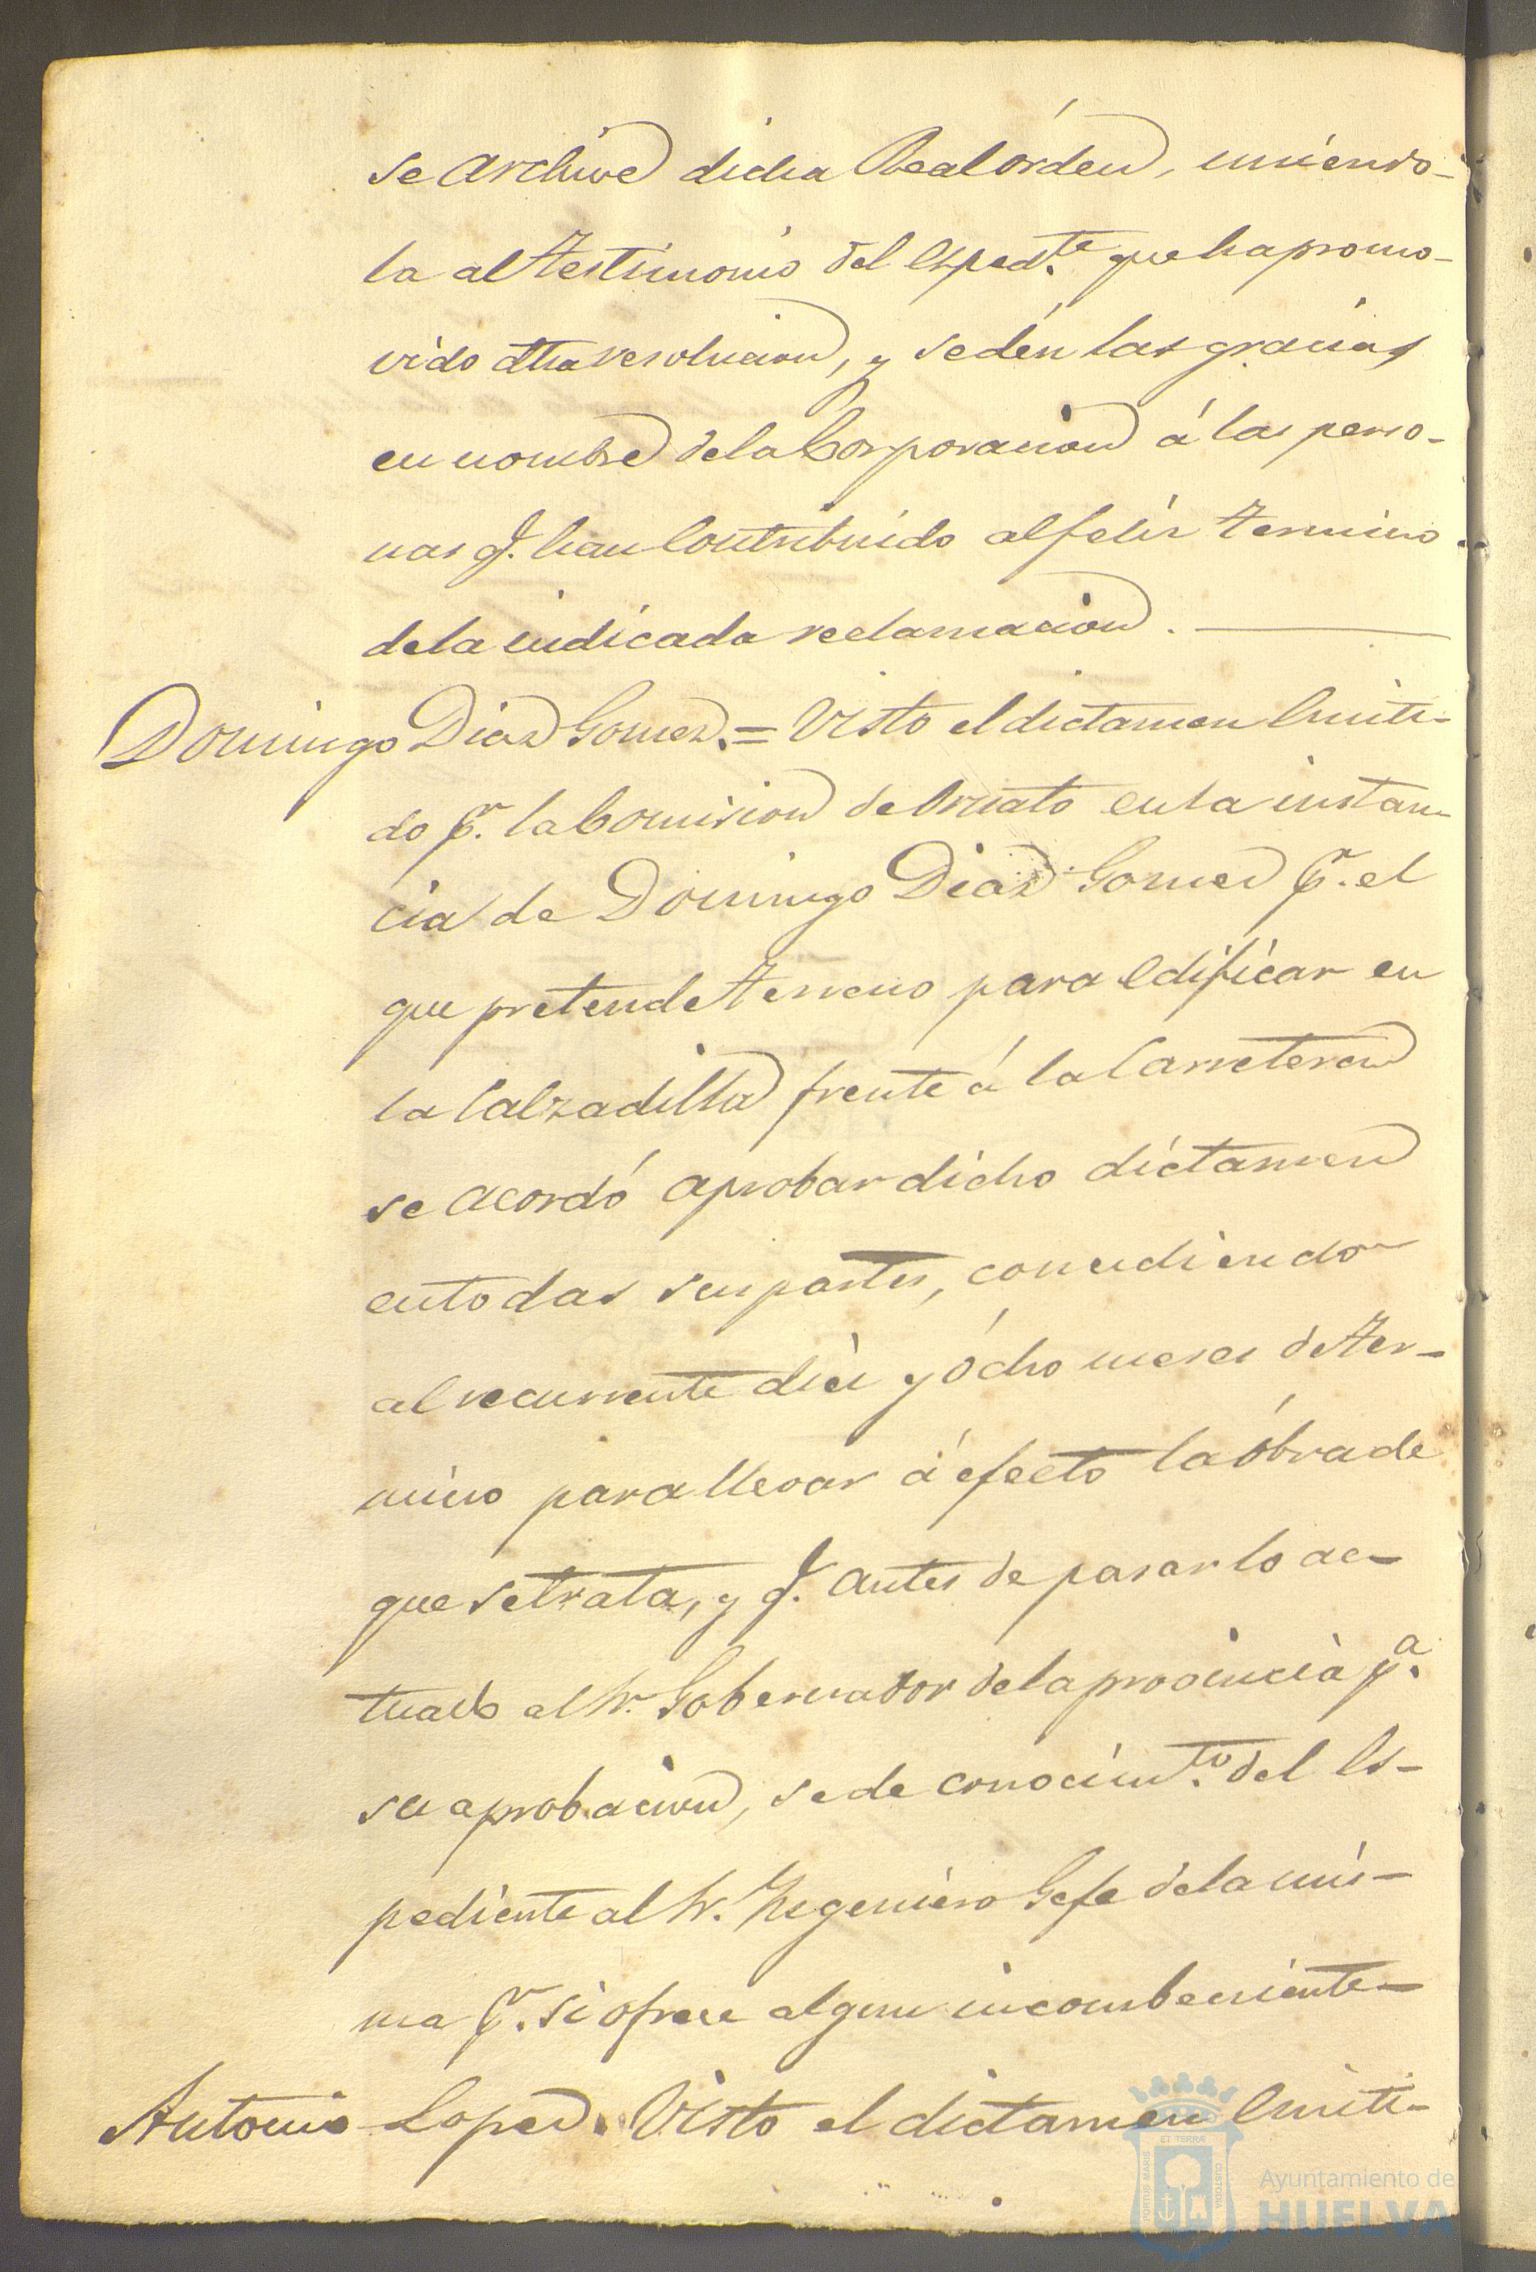 se archive dicha Real órden, uniendo-
la al testimonio del Esped.te que ha promo-
vido dha resolucion, y se dén las gracias
en nombre de la Corporacion á las perso-
nas q. han Contribuido al feliz termino
de la indicada reclamacion.
Domingo Diaz Gomez. = Visto el dictamen Emiti-
do p.r la Comision de Ornato en la instan-
cia de Domingo Diaz Gomez p.r el
que pretende terreno para Edificar en
la Calzadilla frente á la Carretera
se acordó aprobar dicho dictamen
en todas sus partes, concediendo
al recurrente diez y ócho meses de ter-
mino para llevar á efecto la óbra de
que se trata, y q. antes de pasar lo ac-
tuado al Sr. Gobernador de la provincia p.a
su aprobacion, se de conocim.to del Es-
pediente al Sr. Ingeniero Gefe de la mis-
ma p.r si ofrece algun incombeniente
Antonio Lopez. Visto el dictamen Emiti-
PORTUS MARIS
ET TERRÆ
CUSTODIA
Ayuntamiento de
HUELVA